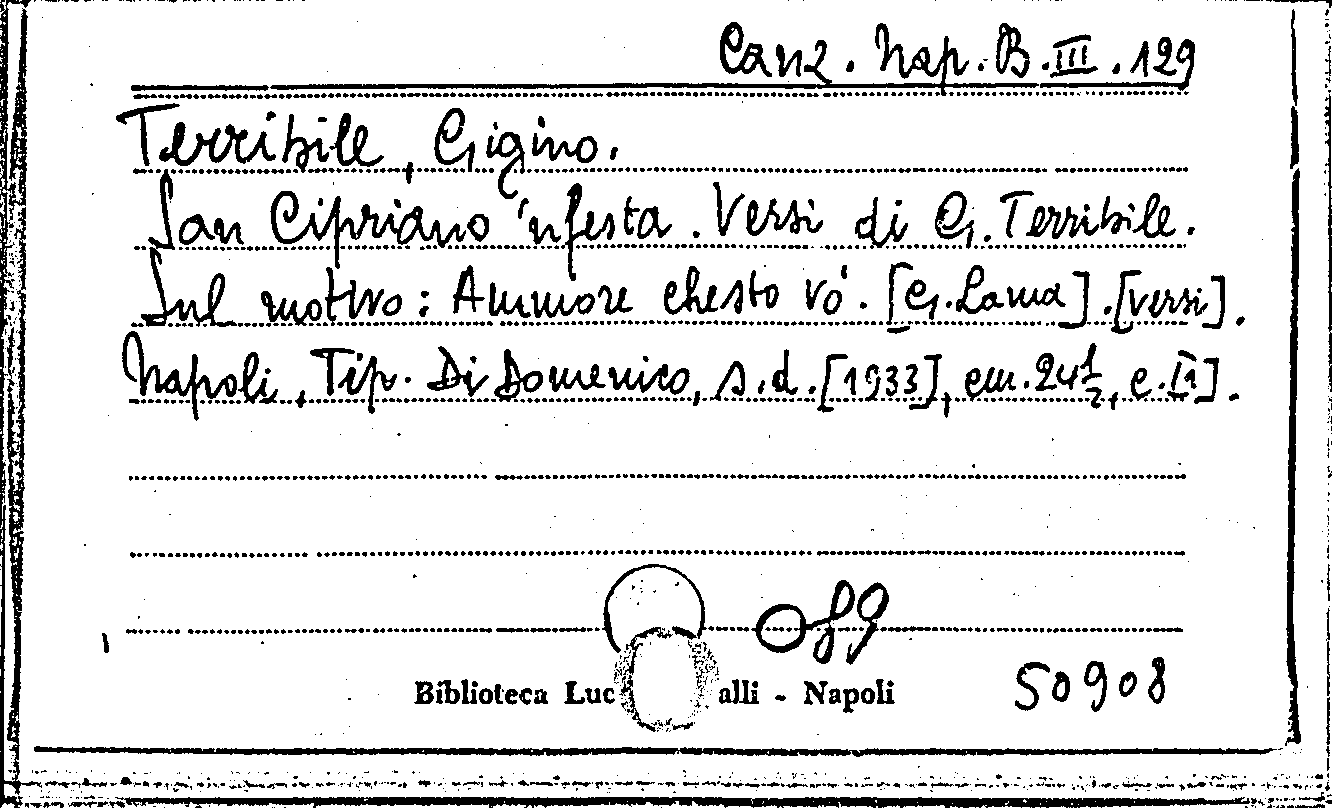 Canz. Nap. B. III. 129
Terribile, Gigino.
San Cipriano 'nfesta. Versi di G. Terribile.
Sul motivo: Ammore chesto vò. [G. Lama]. [versi].
Napoli, Tip. Di Domenico, s.d. [1933], cm. 24 1/2, c. [1].
089
Biblioteca Luc alli - Napoli
50908